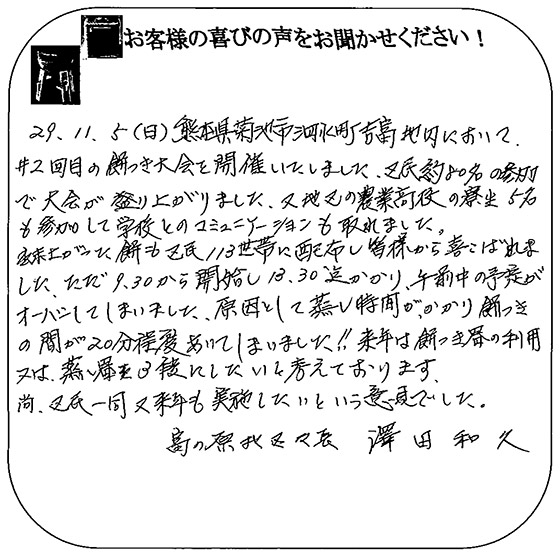 お客様の喜びの声をお聞かせください！
29. 11. 5(日)熊本県菊池市泗水町吉富地内において、
#2回目の餅つき大会を開催いたしました、区民約80名の参加
で大会が盛り上がりました、又地区の農業高校の寮生5名
も参加して学校とのコミュニケーションも取れました。
出来上がった餅も区民113世帯に配布し皆様から喜こばれま
した、ただ9.30から開始し13.30迄かかり、午前中の予定が
オーバーしてしまいました、原因として蒸し時間がかかり餅つき
の間が20分程度あいてしまいました!!来年は餅つき唇の利用
又は、蒸し器を3機にしたいと考えております、
尚、区民一同又来年も実施したいという意見でした。
富の原北区区長 澤田和久